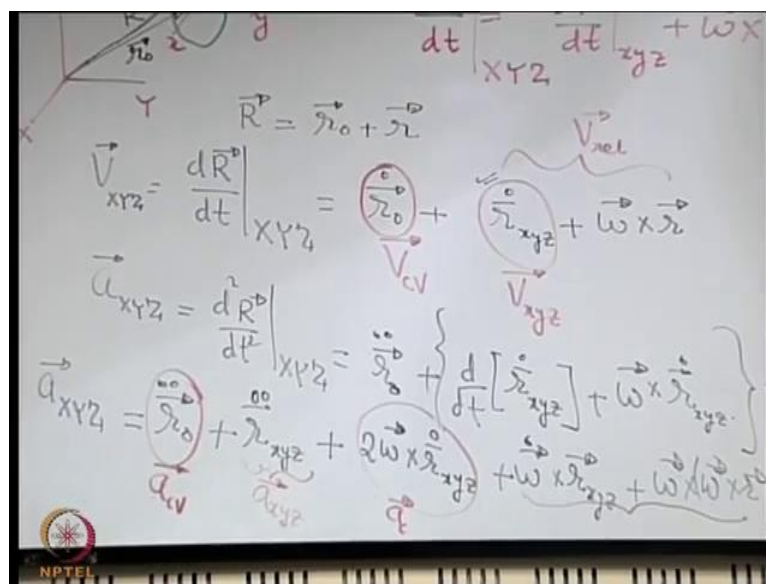 R y d/dt|XYZ d/dt|xyz + ω⃗ ×
r⃗₀ x
Y
X
R⃗ = r⃗₀ + r⃗
V⃗rel
V⃗XYZ = dR⃗/dt|XYZ = ṙ⃗₀ + ṙ⃗xyz + ω⃗ × r⃗
V⃗CV V⃗xyz
a⃗XYZ = d²R⃗/dt²|XYZ = r̈⃗₀ + { d/dt [ṙ⃗xyz] + ω⃗ × ṙ⃗xyz }
a⃗XYZ = r̈⃗₀ + r̈⃗xyz + 2ω⃗ × ṙ⃗xyz + ω̇⃗ × r⃗xyz + ω⃗ × (ω⃗ × r⃗
a⃗CV a⃗xyz q⃗
NPTEL